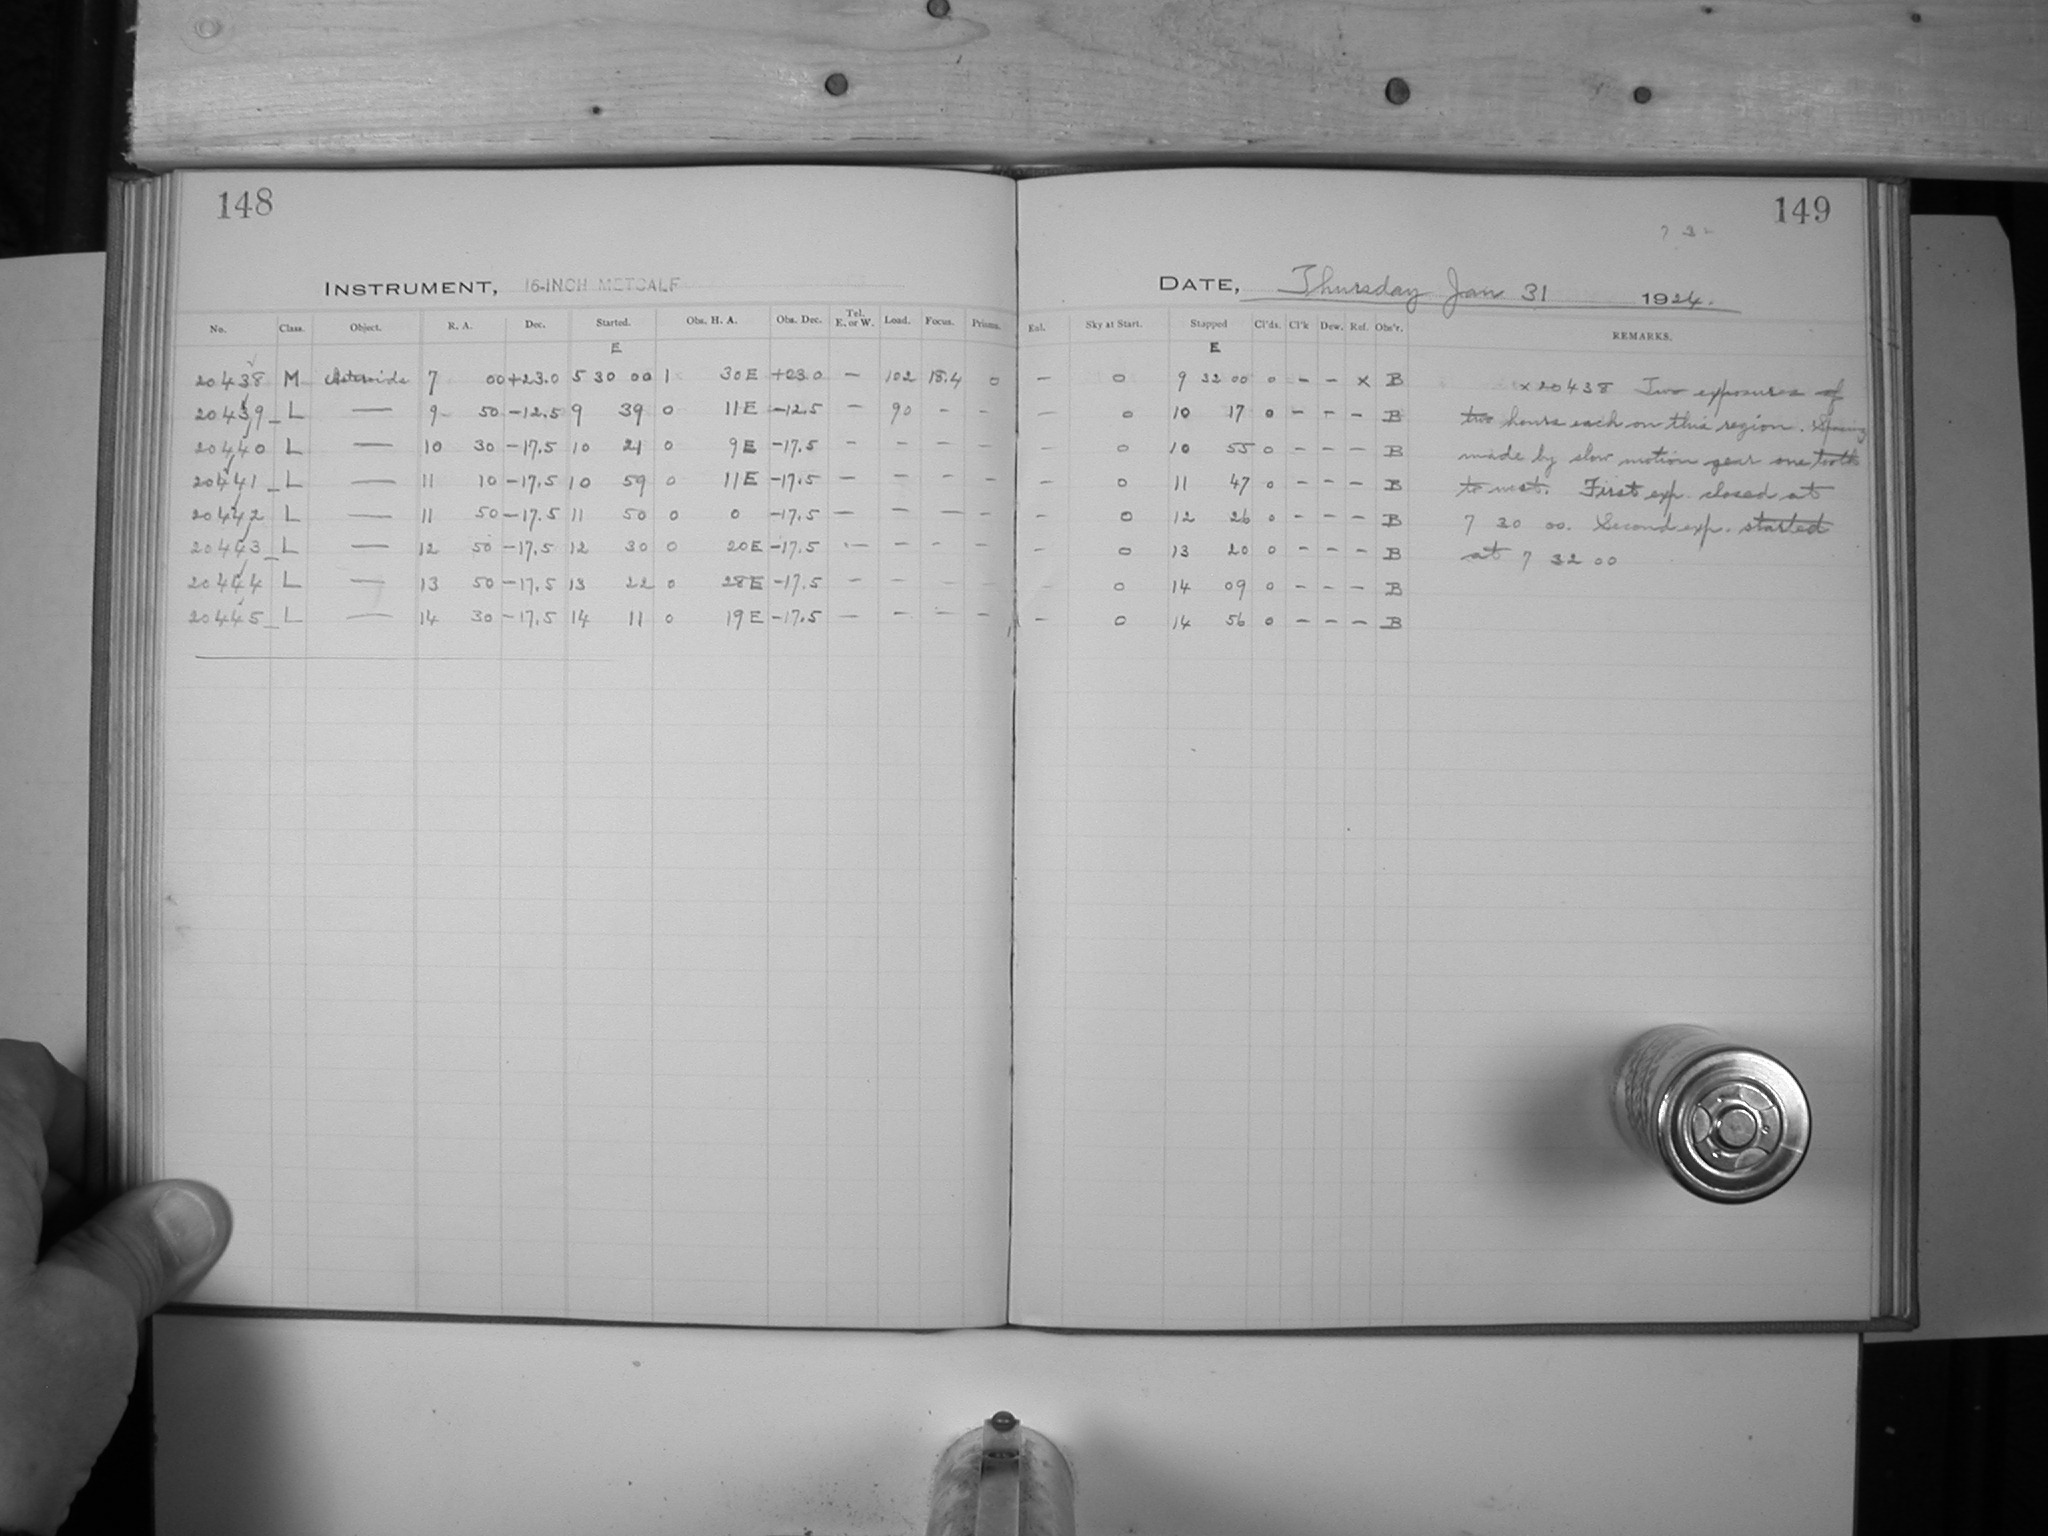 148
149
7 3
INSTRUMENT, 16-INCH METCALF
DATE, Thursday Jan 31 1924.
No. Class. Object. R. A. Dec. Started. Obs. H. A. Obs. Dec. Tel. E. or W. Load. Focus. Prisms. Eal. Sky at Start. Stopped Cl'ds. Cl'k Dew. Ref. Obs'r. REMARKS.
E E
20438 M Asteroids 7 00 +23.0 5 30 00 1 30 E +23 0 — 102 18.4 0 — 0 9 32 00 0 – – x B
20439 L — 9 50 -12.5 9 39 0 11 E -12.5 — 90 – – — 0 10 17 0 – – – B
20440 L — 10 30 -17.5 10 21 0 9 E -17.5 – – – – – 0 10 55 0 – – – B
20441 L — 11 10 -17.5 10 59 0 11 E -17.5 – – – – – 0 11 47 0 – – – B
20442 L — 11 50 -17.5 11 50 0 0 -17.5 – – – – – 0 12 26 0 – – – B
20443 L — 12 50 -17.5 12 30 0 20 E -17.5 – – – – – 0 13 20 0 – – – B
20444 L — 13 50 -17.5 13 22 0 28 E -17.5 – – – – – 0 14 09 0 – – – B
20445 L — 14 30 -17.5 14 11 0 19 E -17.5 – – – – – 0 14 56 0 – – – B
x 20438 Two exposures of
two hours each on this region. Spacing
made by slow motion gear one tooth
to west. First exp. closed at
7 30 00. Second exp. started
at 7 32 00